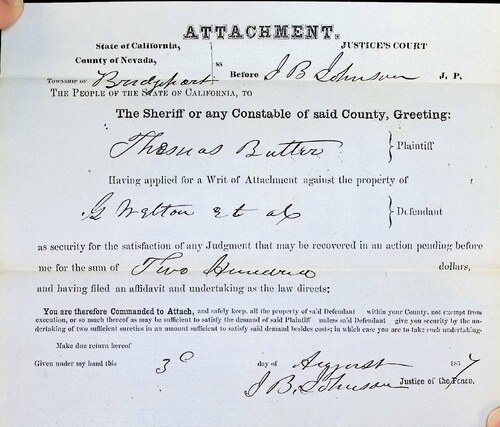 ATTACHMENT.
State of California, JUSTICE'S COURT
County of Nevada, ss
TOWNSHIP OF Bridgeport Before J B Johnson J. P.
THE PEOPLE OF THE STATE OF CALIFORNIA, TO
The Sheriff or any Constable of said County, Greeting:
Thomas Butler Plaintiff
Having applied for a Writ of Attachment against the property of
G Welton et als Defendant
as security for the satisfaction of any Judgment that may be recovered in an action pending before
me for the sum of Two Hundred dollars,
and having filed an affidavit and undertaking as the law directs:
You are therefore Commanded to Attach, and safely keep, all the property of said Defendant within your County, not exempt from
execution, or so much thereof as may be sufficient to satisfy the demand of said Plaintiff unless said Defendant give you security by the un-
dertaking of two sufficient sureties in an amount sufficient to satisfy said demand besides costs; in which case you are to take such undertaking.
Make due return hereof
Given under my hand this 3d day of August 1857
J B. Johnson Justice of the Peace.